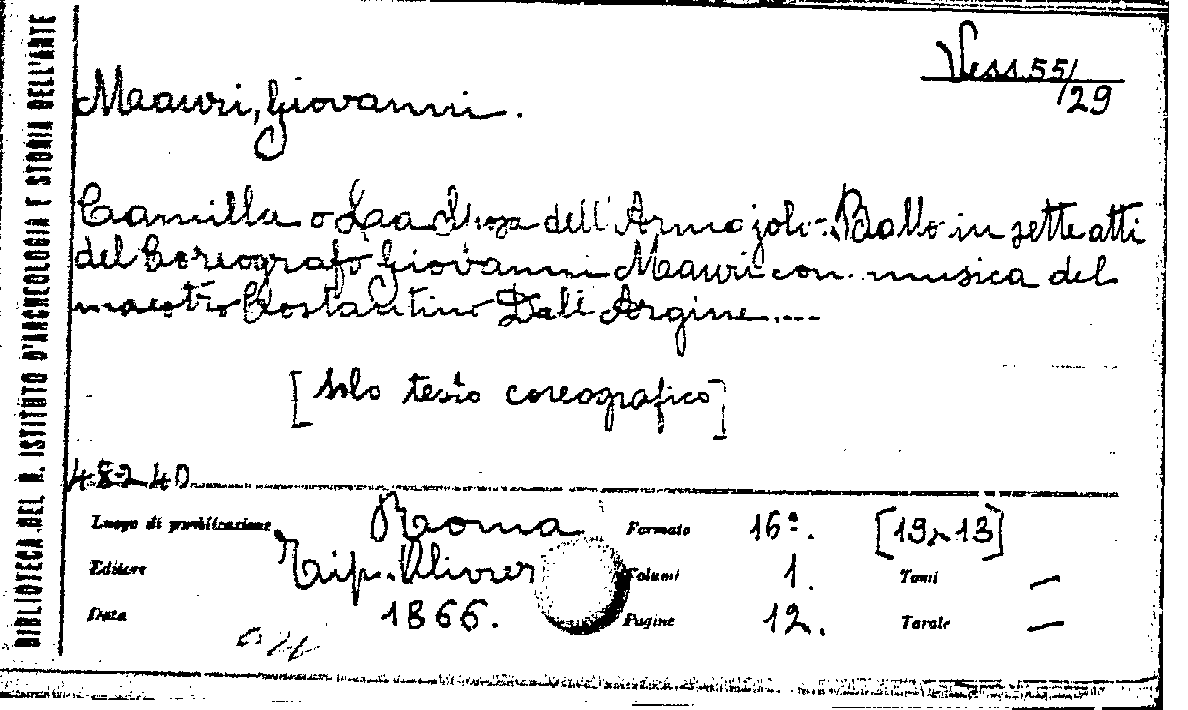 BIBLIOTECA DEL R. ISTITUTO D'ARCHEOLOGIA E STORIA DELL'ARTE
Vess. 55/29
Mauri, Giovanni.
Camilla o La dell'Armajolo. Ballo in sette atti
del Coreografo Giovanni Mauri con musica del
maestro Costantino Dall'Argine....
[solo testo coreografico]
48240
Luogo di pubblicazione Roma Formato 16°. [19x13]
Editore Tip. Olivieri Volumi 1. Tomi —
Data 1866. Pagine 12. Tavole —